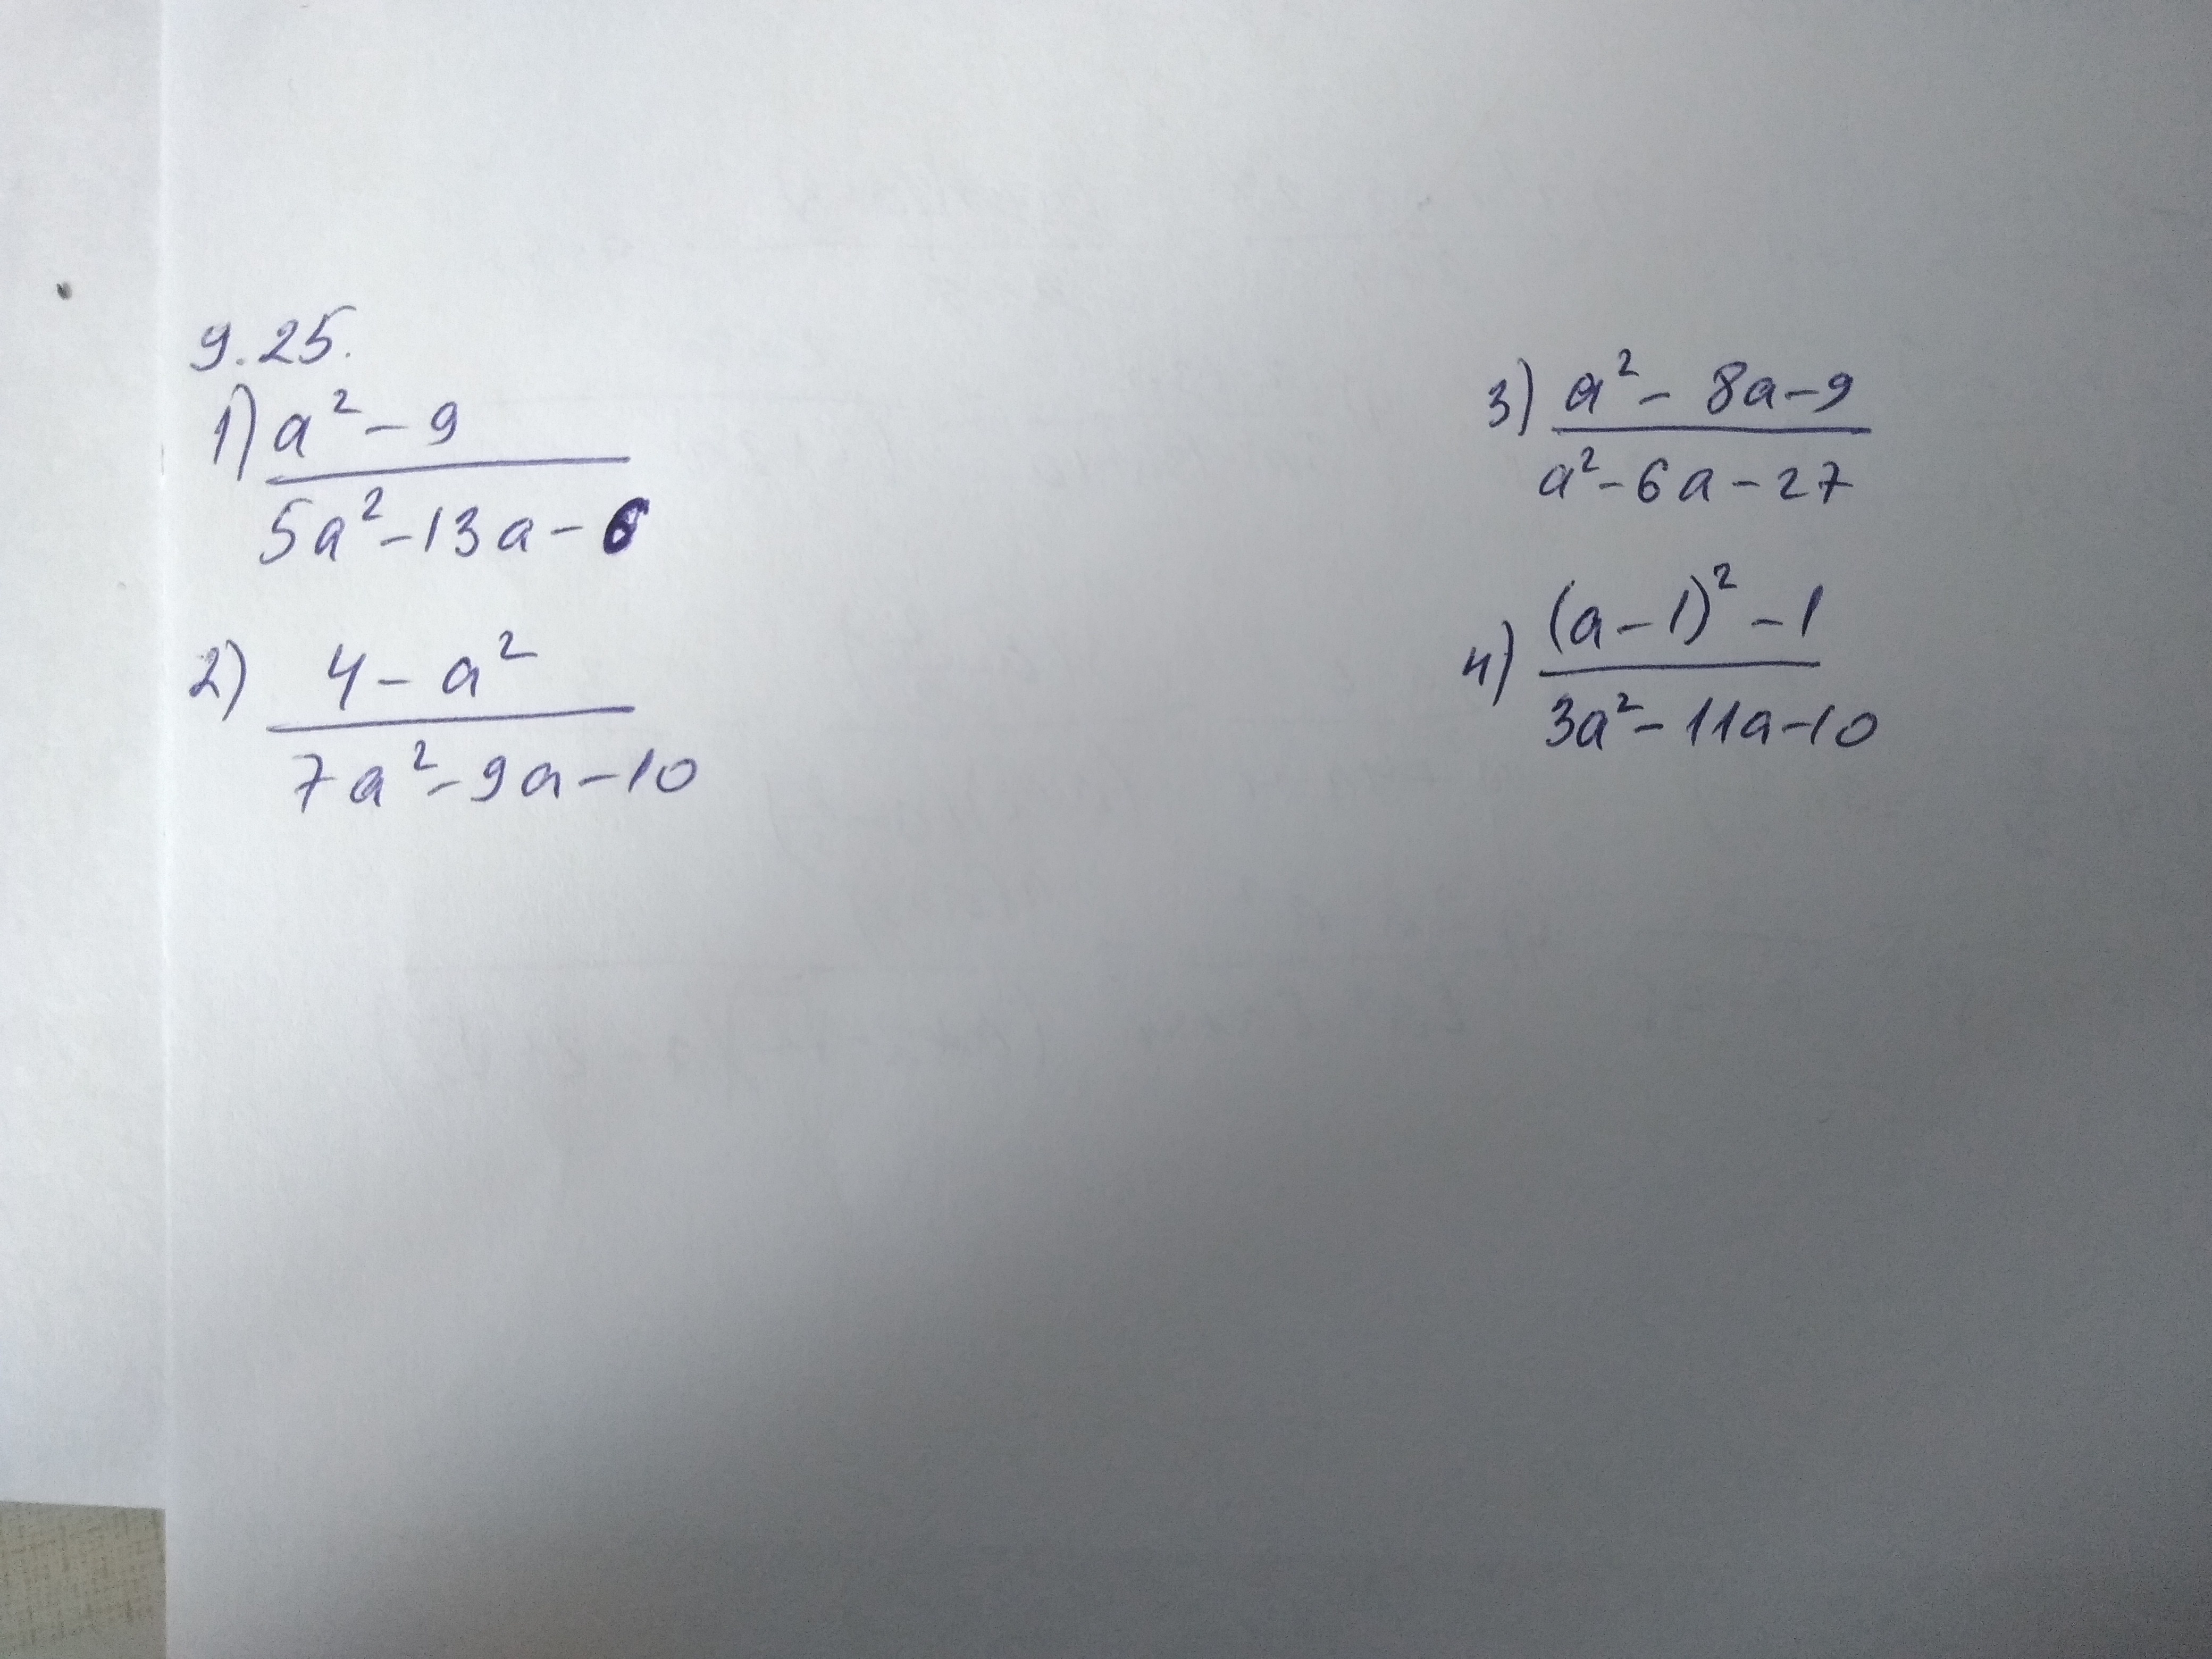 9.25.
1) a² - 9
5a² - 13a - 6
2) 4 - a²
7a² - 9a - 10
3) a² - 8a - 9
a² - 6a - 27
4) (a - 1)² - 1
3a² - 11a - 10